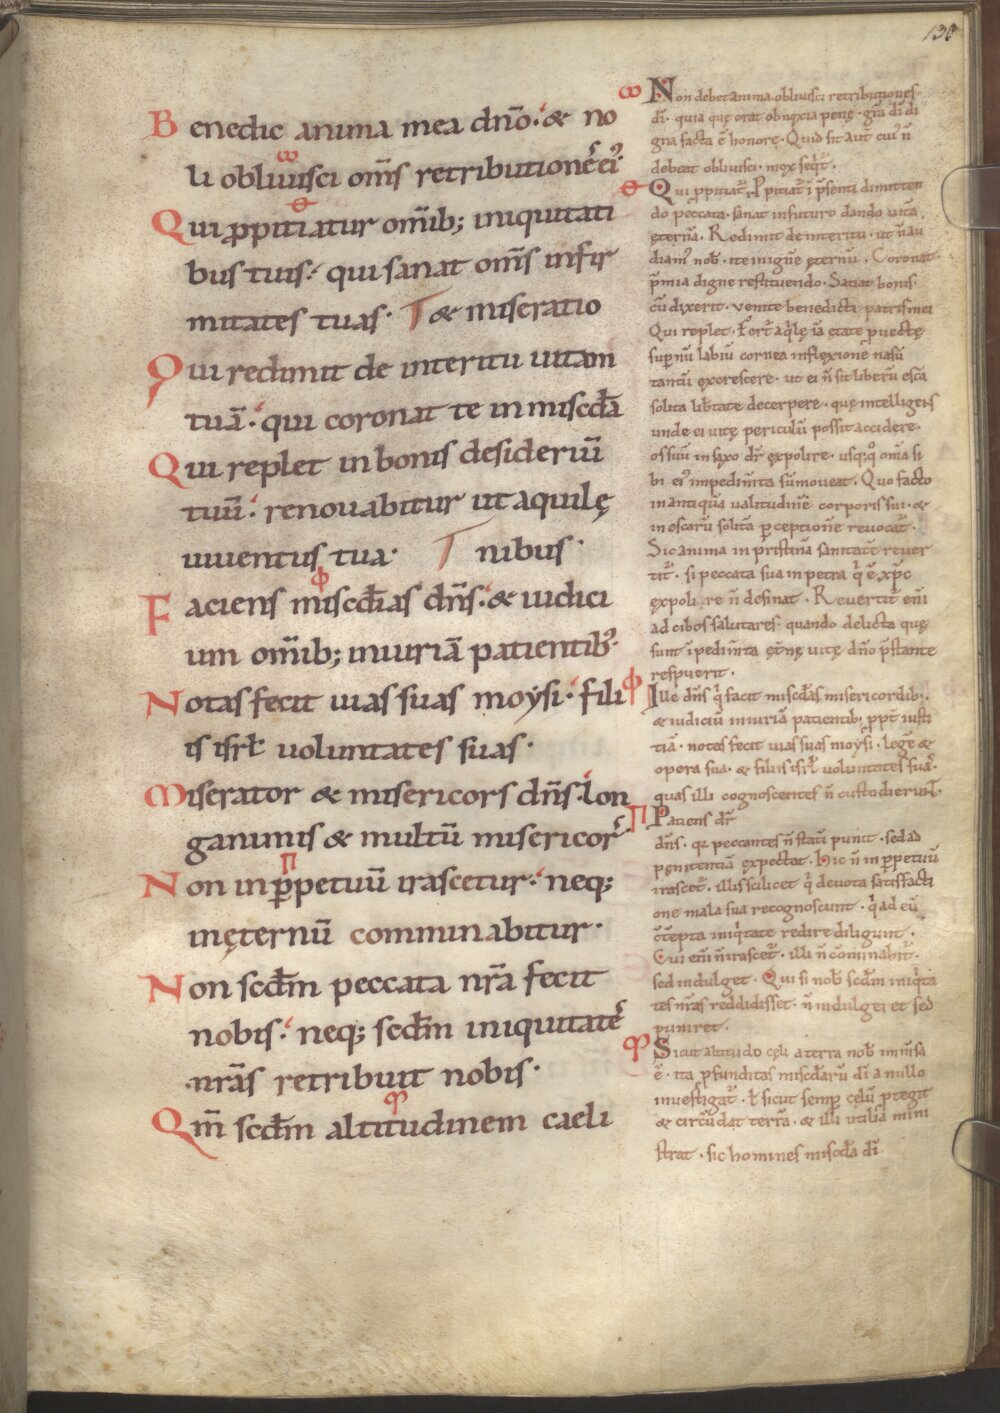 130
Benedic anima mea dn̄o · & no
li obliuisci om̄s retributionē ei᾽·
Qui ꝓpitiatur om̄ib; iniquitati
bus tuis · qui sanat om̄s infir
mitates tuas · & miseratio
Qui redimit de interitu uitam
tuā · qui coronat te in miscd̄a
Qui replet in bonis desideriū
tuū · renouabitur ut aquilę
iuuentus tua · nibus ·
Faciens miscd̄ias dn̄s · & iudici
um om̄ib; iniuriā patientib᾽·
Notas fecit uias suas moẏsi · fili
is isrł uoluntates suas ·
Miserator & misericors dn̄s · lon
ganimis & multū misericor᾽
Non in ꝑpetuū irascetur · neq;
in ęternū comminabitur ·
Non scd̄m peccata nr̄a fecit
nobis · neq; scd̄m iniquitatē
nrās retribuit nobis ·
Qm̄ scd̄m altitudinem caeli
ω Non debet anima obliuisci retributiones
dī · quia quę erat obnoxia penę · gr̄a dī di
gna facta ē honore · Quid sit aut̄ cui᾽ n̄
debeat obliuisci · mox seq̄t̄ ·
Qui ꝓpitiat᾽ · Ꝓpitiat᾽ ī p̄senti dimitten
do peccata · sanat in futuro dando uitā
ęternā · Redimit de interitu · ut n̄ au
diam᾽ nob̄ · ite in ignē ęternū · Coronat
p̄mia digne restituendo · Satiat bonis
cū dixerit · uenite benedicti patris mei
Qui replet · Fert᾽ aq̇lę iā etate ꝓuectę
supnū labiū cornea inflexione nasū
tantū excrescere · ut ei n̄ sit liberū escā
solita lib̄tate decerpere · quę intelligens
unde ei uitę periculū possit accidere ·
os suū in saxo dr̄ expolire · usq; q̊ om̄a si
bi ei᾽ impedim̄ta sūmoueat · Quo facto
in antiquā ualitudinē corporis sui · &
in escarū solitā ꝑceptionē reuocat᾽ ·
Sic anima in pristinā sanitatē reuer
tit᾽ · si peccata sua in petra q̇ ē xp̄c
expolire n̄ desinat · Reuertit᾽ eni
ad cibos salutares · quando delicta quę
sunt īpedim̄ta et̄nę uitę dn̄o p̄stante
respuerit ·
ϕ Ille dn̄s q̇ facit miscd̄as misericordib; ·
& iudiciū iniuriā patientib; ꝓpt̄ iusti
tiā · notas fecit uias suas moẏsi · legē &
opera sua · & filiis isrł uoluntates suas ·
quas illi cognoscentes n̄ custodierunt ·
Π Patiens dr̄
dn̄s · qꝫ peccantes n̄ statī punit · sed ad
pęnitentiā expectat · Hic n̄ in ꝑpetuū
irascet᾽ · illis scilicet q̇ deuota satisfacti
one mala sua recognoscunt · q̇ ad eū
ct̄epta iniq̇tate redire diligunt ·
Cui enī n̄ irascet᾽ · illi n̄ cōminabit᾽ ·
sed indulget · Qui si nob̄ scd̄m iniq̇ta
tes nr̄as reddidisset · n̄ indulgeret sed
puniret ·
Sicut altitudo cęli a terra nob̄ inm̄sa
ē · ita ꝓfunditas miscd̄arū dī a nullo
inuestigat᾽ · ł sicut semp cęlū ꝓtegit
& circūdat terrā · & illi utilia mini
strat · sic homines miscd̄a dī ·